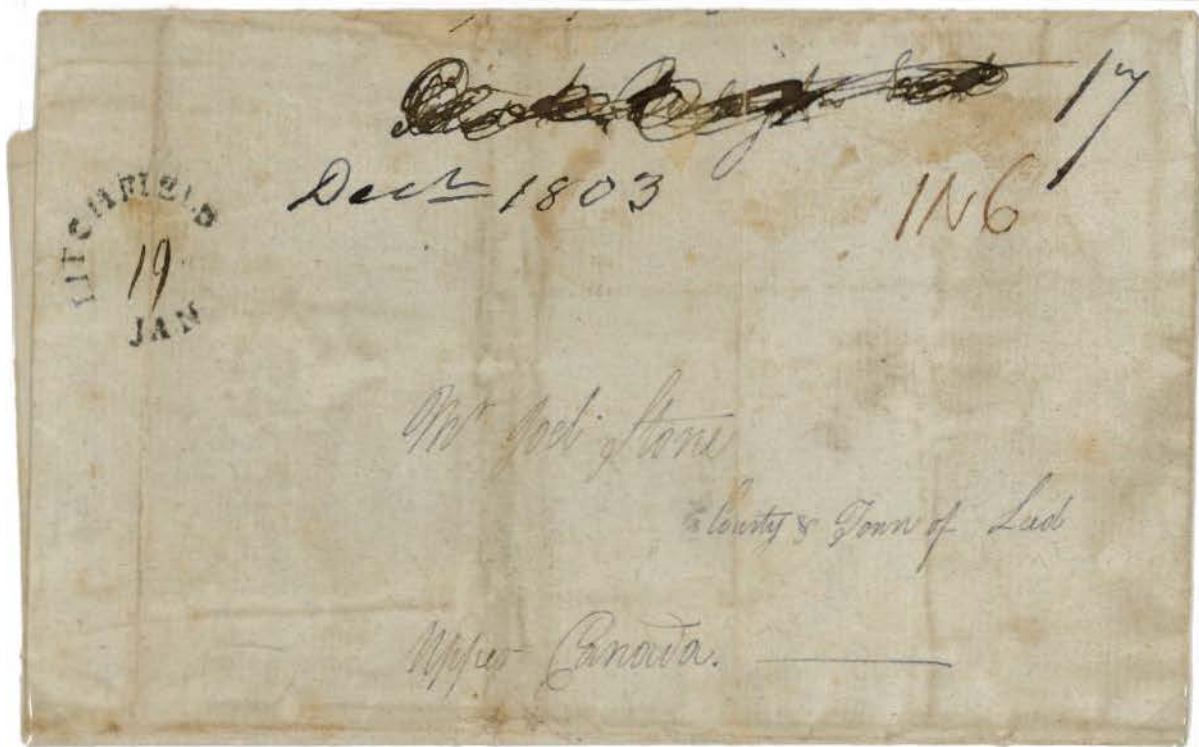 17
Decr 1803
1N6
LITCHFIELD
19
JAN
Mr Joel Stone
County & Town of Leed
Upper Canada.